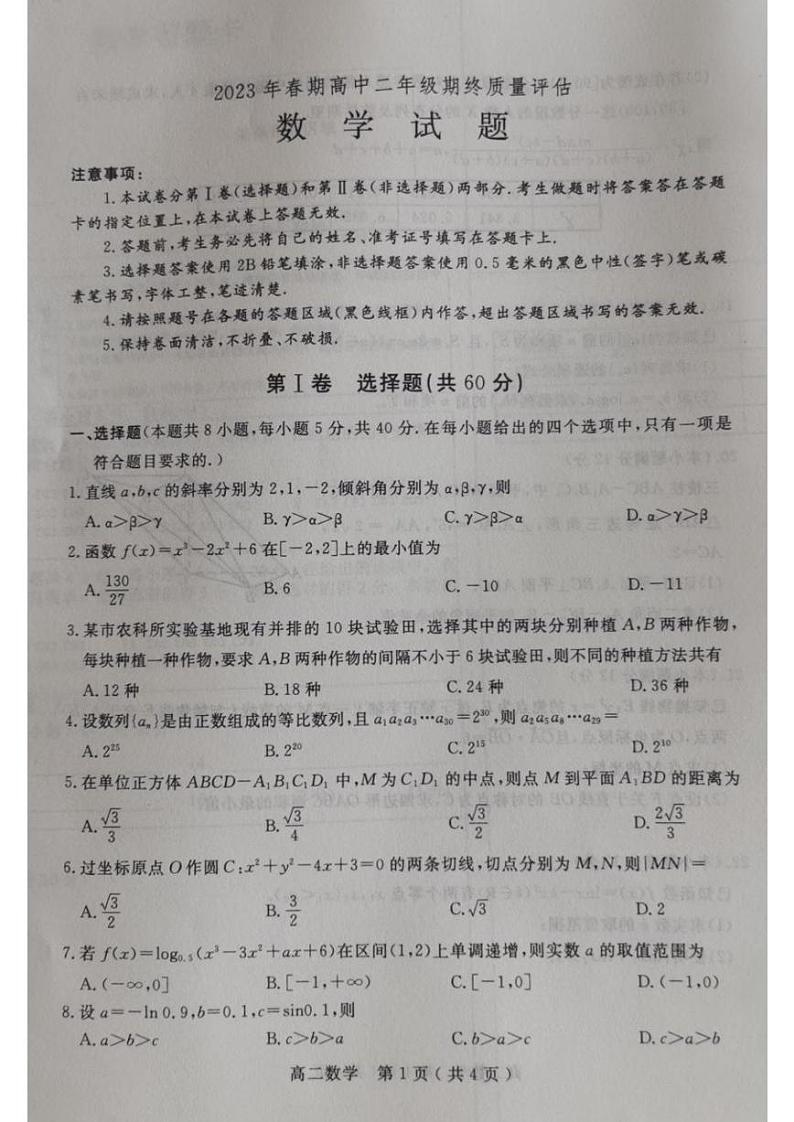 2023年春期高中二年级期终质量评估
数 学 试 题
注意事项:
1.本试卷分第Ⅰ卷(选择题)和第Ⅱ卷(非选择题)两部分.考生做题时将答案答在答题
卡的指定位置上,在本试卷上答题无效.
2.答题前,考生务必先将自己的姓名、准考证号填写在答题卡上.
3.选择题答案使用2B铅笔填涂,非选择题答案使用0.5毫米的黑色中性(签字)笔或碳
素笔书写,字体工整,笔迹清楚.
4.请按照题号在各题的答题区域(黑色线框)内作答,超出答题区域书写的答案无效.
5.保持卷面清洁,不折叠、不破损.
第Ⅰ卷 选择题(共60分)
一、选择题(本题共8小题,每小题5分,共40分.在每小题给出的四个选项中,只有一项是
符合题目要求的.)
1.直线a,b,c的斜率分别为2,1,-2,倾斜角分别为α,β,γ,则
A.α>β>γ B.γ>α>β C.γ>β>α D.α>γ>β
2.函数f(x)=x³-2x²+6在[-2,2]上的最小值为
A.130/27 B.6 C.-10 D.-11
3.某市农科所实验基地现有并排的10块试验田,选择其中的两块分别种植A,B两种作物,
每块种植一种作物,要求A,B两种作物的间隔不小于6块试验田,则不同的种植方法共有
A.12种 B.18种 C.24种 D.36种
4.设数列{aₙ}是由正数组成的等比数列,且a₁a₂a₃⋯a₃₀=2³⁰,则a₂a₅a₈⋯a₂₉=
A.2²⁵ B.2²⁰ C.2¹⁵ D.2¹⁰
5.在单位正方体ABCD-A₁B₁C₁D₁中,M为C₁D₁的中点,则点M到平面A₁BD的距离为
A.√3/3 B.√3/4 C.√3/2 D.2√3/3
6.过坐标原点O作圆C:x²+y²-4x+3=0的两条切线,切点分别为M,N,则|MN|=
A.√3/2 B.3/2 C.√3 D.2
7.若f(x)=log₀.₅(x³-3x²+ax+6)在区间(1,2)上单调递增,则实数a的取值范围为
A.(-∞,0] B.[-1,+∞) C.[-1,0] D.(-1,0)
8.设a=-ln 0.9,b=0.1,c=sin0.1,则
A.a>b>c B.c>b>a C.b>a>c D.c>a>b
高二数学 第1页(共4页)